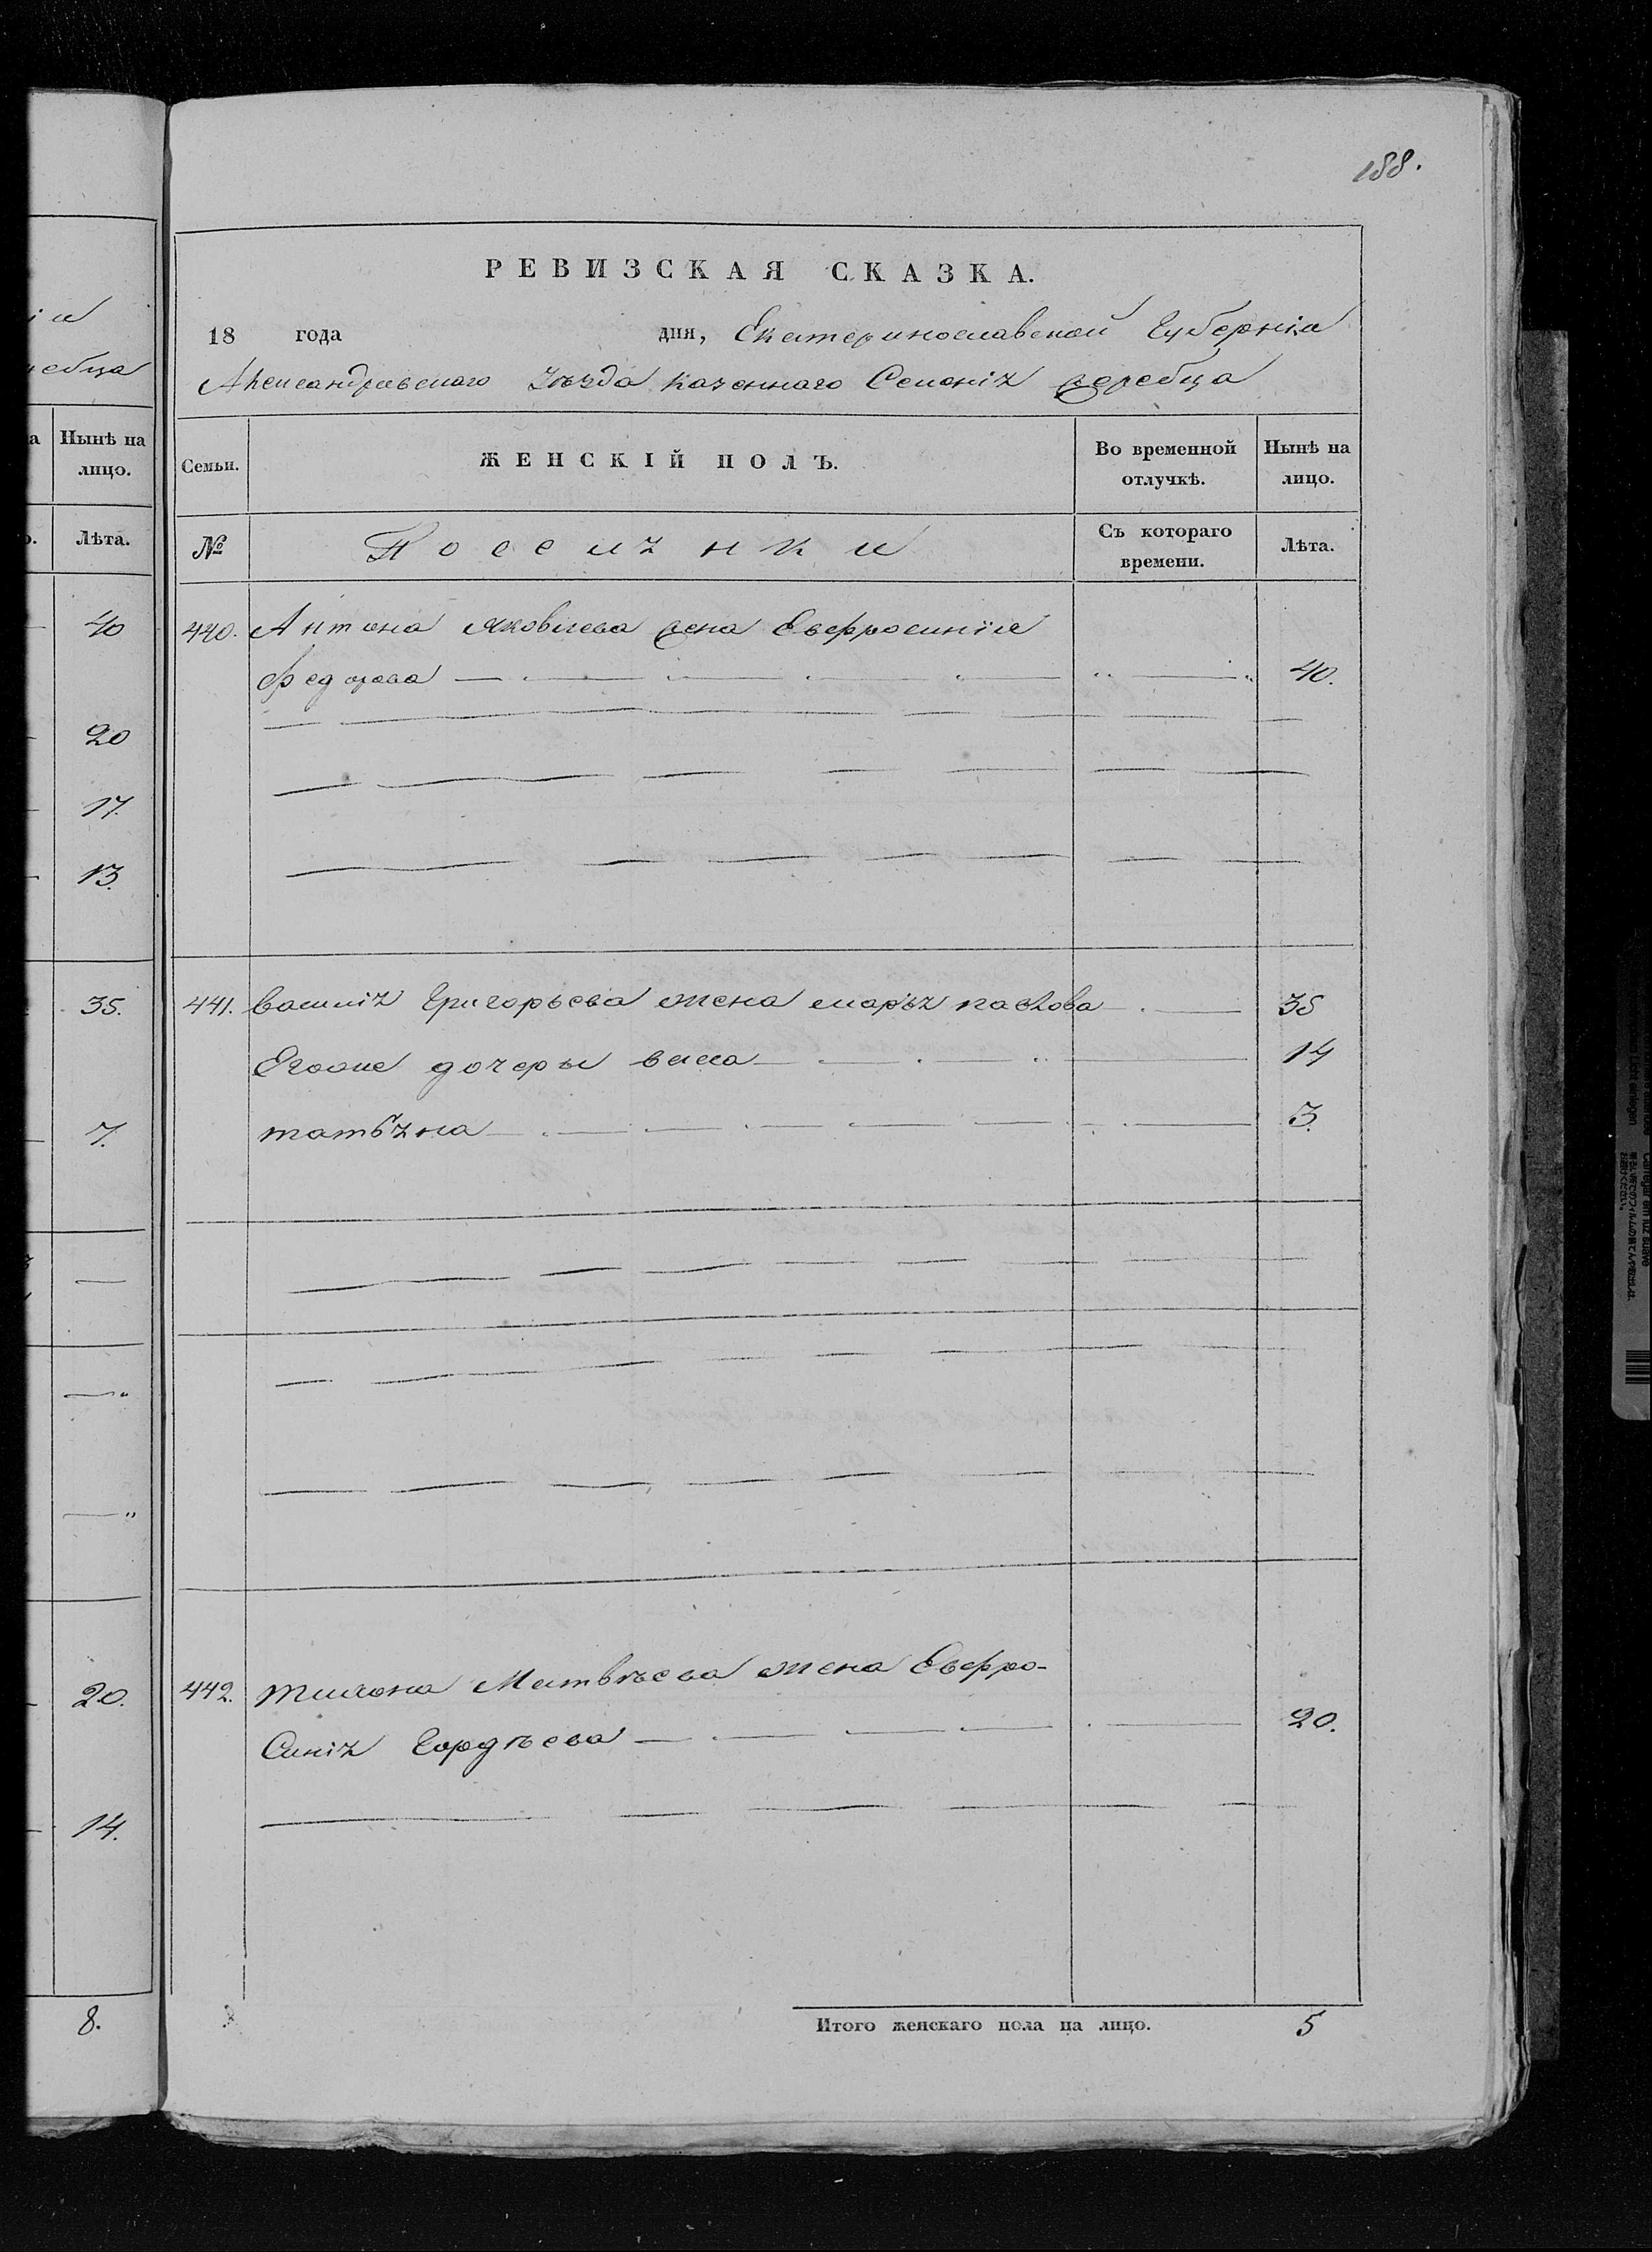 188.
РЕВИЗСКАЯ СКАЗКА.
18 года дня, Екатеринославской Губерніи
Александровскаго Уѣзда казеннаго Селенія жеребца
Семьи. ЖЕНСКІЙ ПОЛЪ. Во временной отлучкѣ. Нынѣ на лицо.
№ Съ котораго времени. Лѣта.
440. Антона Яковлева жена Евфросинія
Федорова 40.
441. Василія Григорьева жена марья павлова 35
Егоже дочеры 14
татьяна 3.
442. Матвѣева жена Евфро-
Синія Гордѣева 20.
Итого женскаго пола на лицо. 5
іи
ребца
а Нынѣ на лицо.
Лѣта.
40
20
17.
13.
35.
7.
20.
14.
8.